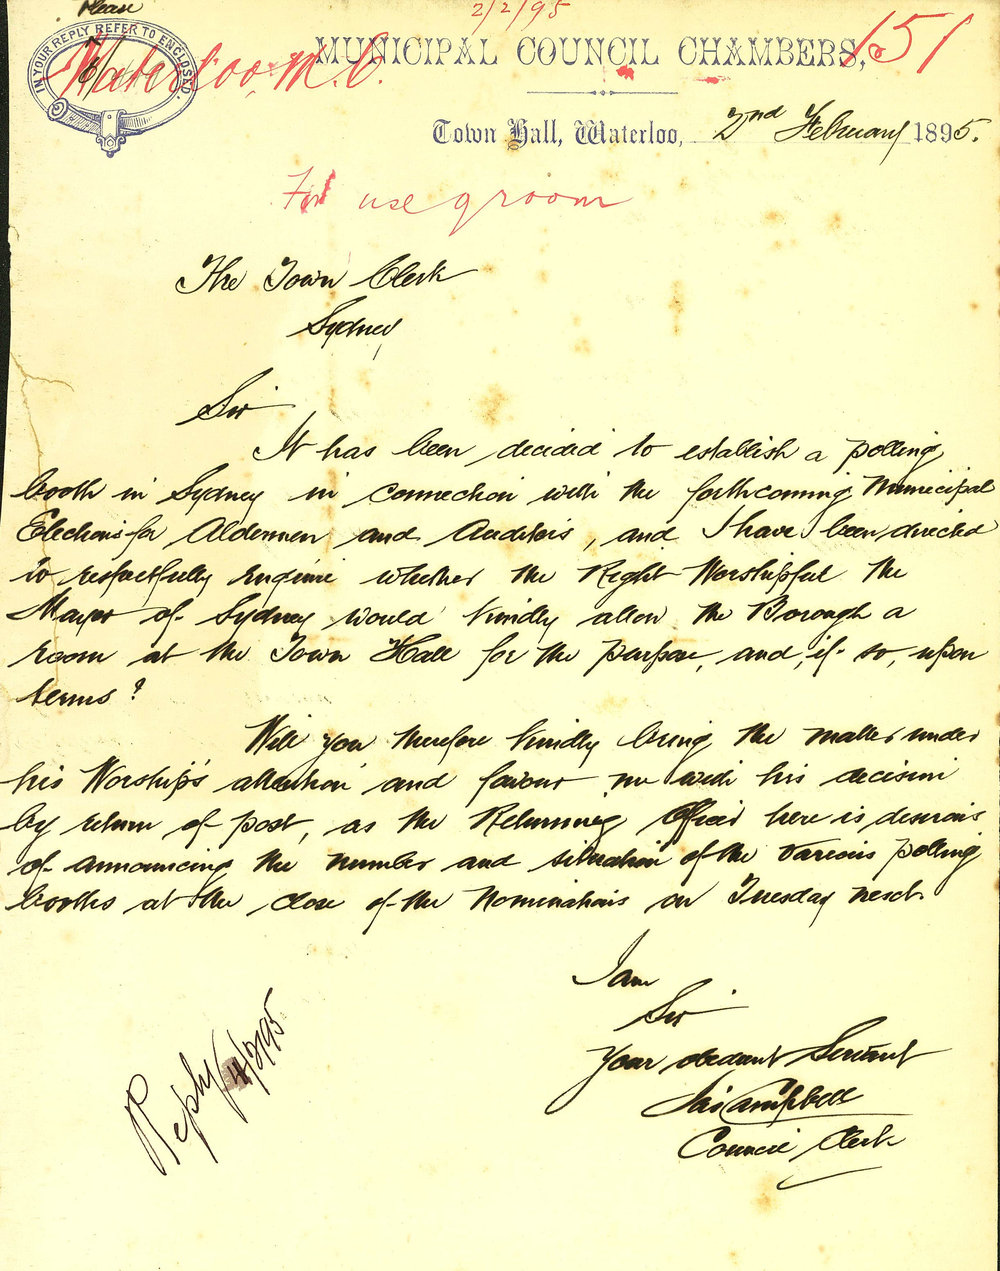 Please
2/2/95
IN YOUR REPLY REFER TO ENCLOSED.
Waterloo, M.C.
MUNICIPAL COUNCIL CHAMBERS,
151
Town Hall, Waterloo, 2nd February 1895.
For use of room
The Town Clerk
Sydney
Sir
It has been decided to establish a polling
booth in Sydney in connection with the forthcoming Municipal
Elections for Aldermen and Auditors, and I have been directed
to respectfully enquire whether the Right Worshipful the
Mayor of Sydney would kindly allow the Borough a
room at the Town Hall for the purpose, and, if so, upon
terms?
Will you therefore kindly bring the matter under
his Worship's attention and favour me with his decision
by return of post, as the Returning Officer here is desirous
of announcing the number and situation of the various polling
booths at the close of the Nominations on Tuesday next.
I am
Sir
Your obedient Servant
Jas Campbell
Council Clerk
Reply 4/2/95